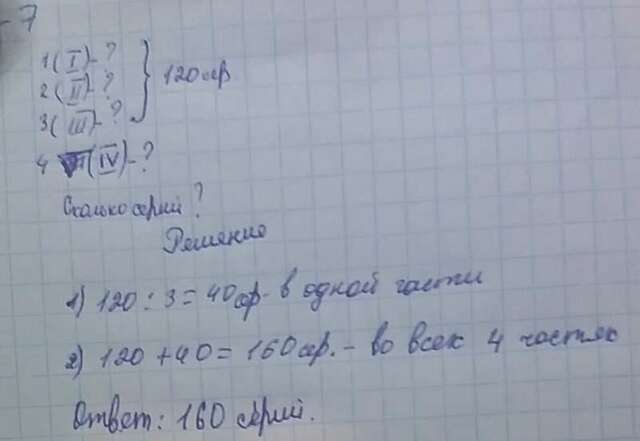 -7
1 (I) - ?
2 (II) - ?
3 (III) - ?
} 120 сер.
4 (IV) - ?
Сколько серий?
Решение
1) 120 : 3 = 40 сер. - в одной части
2) 120 + 40 = 160 сер. - во всех 4 частях
Ответ: 160 серий.